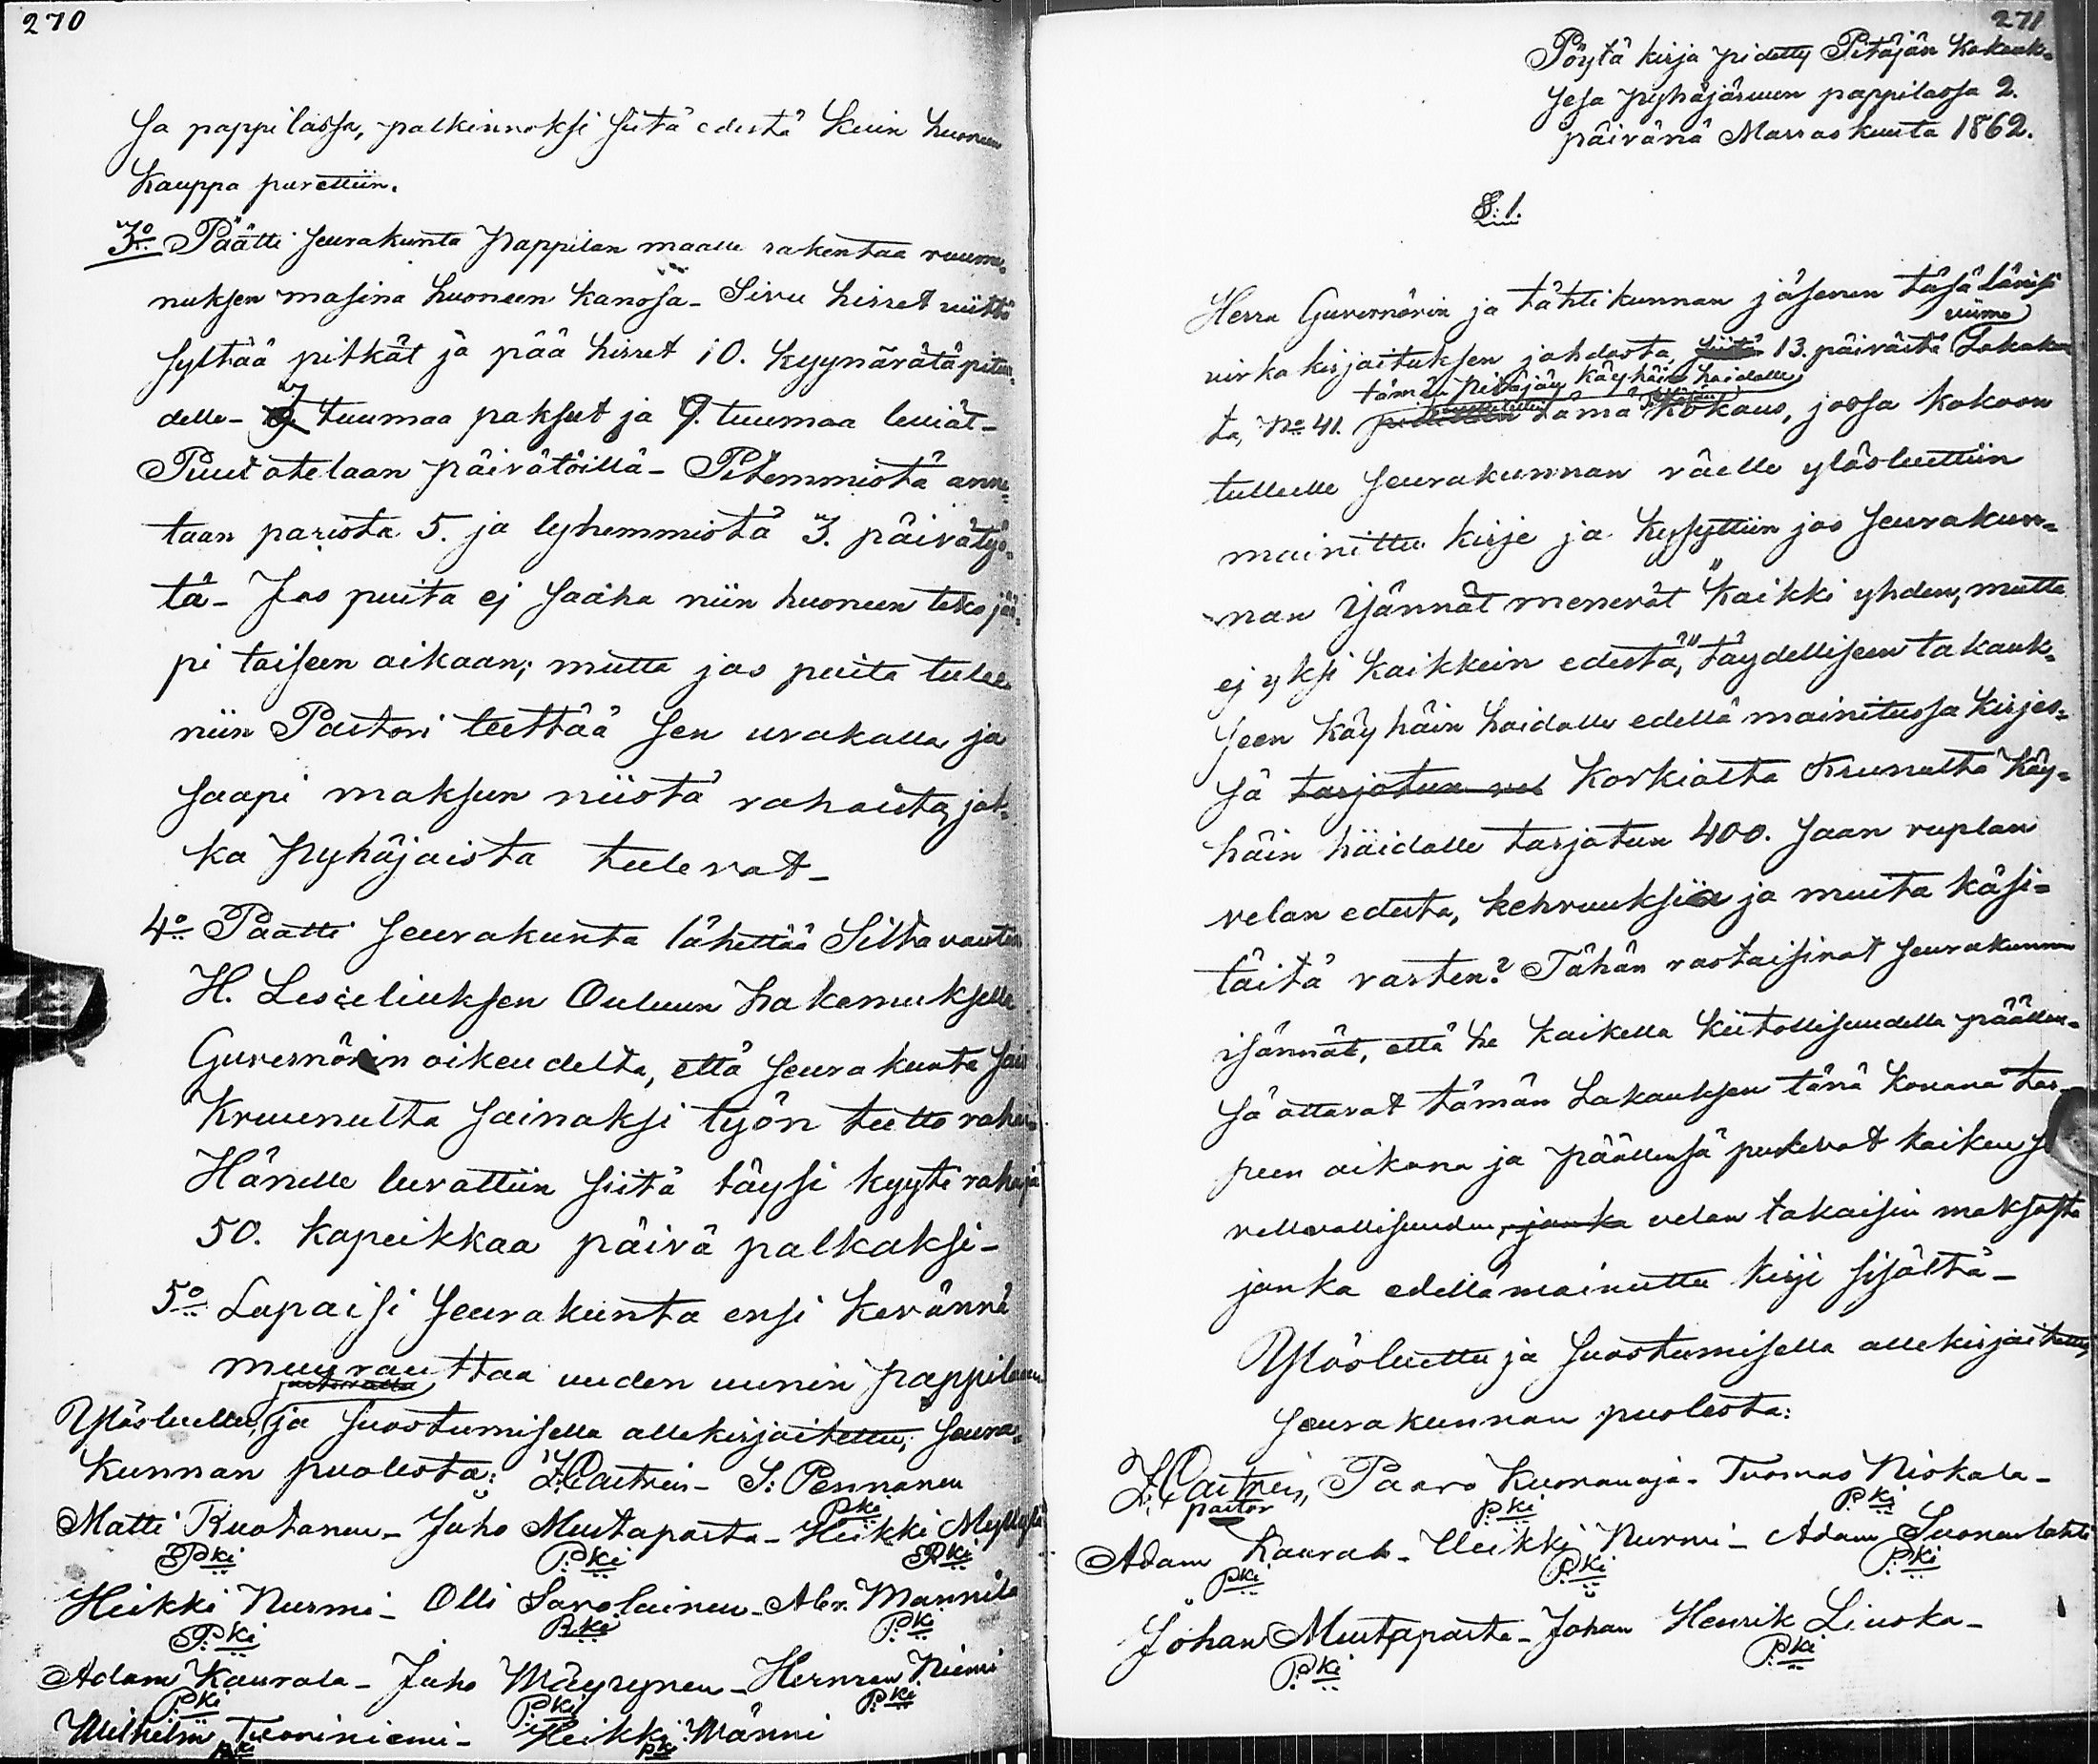 270
sa pappilassa, palkinnoksi siitä edestä kuin huoneen
kauppa purettiin.
3o Päätti seurakunta pappilan maalle rakentaa ruume-
nuksen masina huoneen kanssa - Sivu hirret viittä
syltää pitkät ja pää hirret 10. kyynärätä pitu-
delle - 7 tuumaa paksut ja 9. tuumaa leviät -
Puut otelaan päivätöillä - Pitemmistä anne-
taan parista 5. ja lyhemmistä 3. päivätyö-
tä - Jos puita ej saaha niin huoneen teko jää-
pi toiseen aikaan; mutta jos puita tulee
niin Pastori teettää sen urakalla ja
saapi maksun niistä rahoista, jot-
ka Pyhäjaista tulevat -
4o Päätti seurakunta lähettää Siltavoutin
H. Lesceliuksen Ouluun hakemukselle
Guvernörin oikeudelta, että seurakunta sais
Kruunulta lainaksi työn teetto rahaa
Hänelle luvattiin siitä täysi kyyti raha ja
50. kapeikkaa päivä palkaksi -
5o Lupaisi seurakunta ensi kevännä
muurauttaa uuden uunin pappilaan
Ylösluettu, ja suostumisella allekirjoitettu; seura-
kunnan puolesta: F. Castrén - S. Pennanen
Pki
Matti Ruotanen - Juho Mustaparta - Heikki Myllylä
Pki Pki Pki
Heikki Nurmi - Olli Savolainen - Alex. Mannila
Pki Pki Pki
Adam Kaurala - Juho Mäyrynen - Herman Niemi
Pki Pki Pki
Wilhelm Tuoriniemi - Heikki Männi
Pki Pki
271
Pöytä kirja pidetty Pitäjän kokouk-
sesa Pyhäjärven pappilassa 2.
päivänä Marraskuuta 1862.
§. 1.
Herra Guvernörin ja tähtikunnan jäsenen täsä länisä
viime
virka kirjoituksen johdosta, siitä 13. päivästä Lokakuu
tämän pitäjän käyhäin hoidolle
ta, No 41. pidettiin tämä kokous, jossa kokoon
tulleelle seurakunnan väelle ylösluettiin
mainittu kirje ja kysyttiin jos seurakun-
nan isännät menevät "kaikki yhden, mutta
ej yksi kaikkein edestä," täydelliseen takauk-
seen käyhäin hoidolle edellä mainitussa kirjes-
sä tarjotun vel korkialta Kruunulta käy-
häin hoidolle tarjotun 400. saan ruplan
velan edestä, kehruuksia ja muita käsi-
töitä varten? Tähän vastaisivat seurakunnan
isännät, että he kaikella kiitollisuudella päällen-
sä ottavat tämän Lakauksen tänä kovana tar-
peen aikana ja päällensä pukevat kaiken
vellvollisuuden, jonka velan takaisin maksosta
jonka edellämainittu kirje sisältä -
Ylösluettu ja suostumisella allekirjoitettu,
seurakunnan puolesta:
F. Castrén, Paavo Kumanaja - Tuomas Niskala -
pastor Pki Pki
Adam Kaurala - Heikki Nurmi - Adam Suonenlahti
Pki Pki Pki
Johan Mustaparta - Johan Henrik Liuska -
Pki Pki